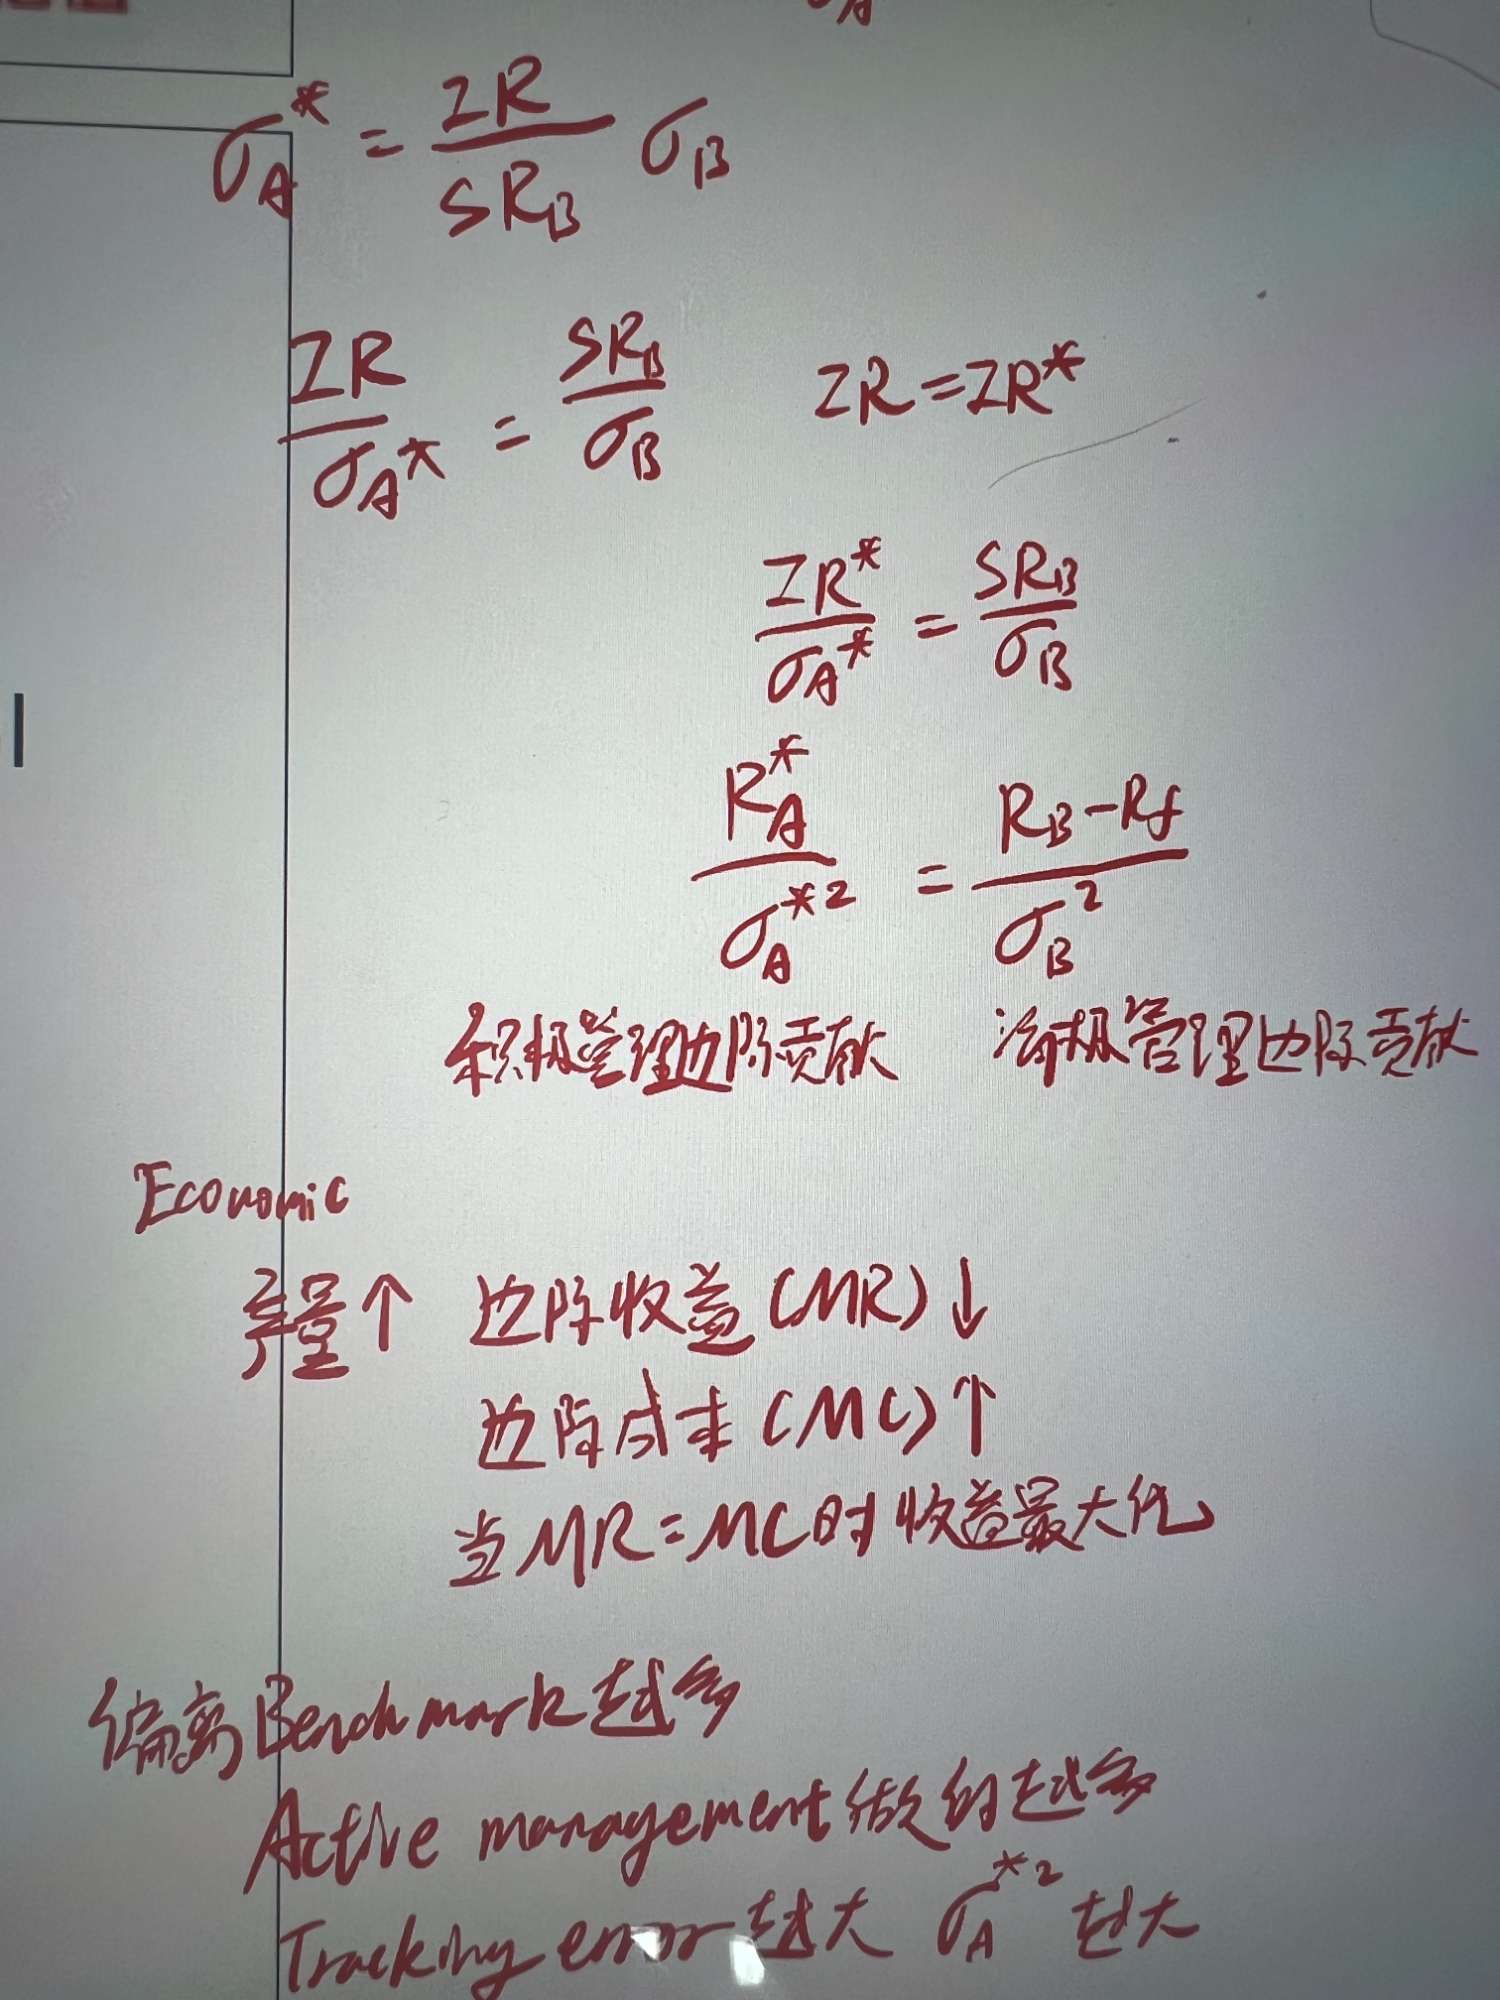 σ_A* = IR/SR_B σ_B
IR/σ_A* = SR_B/σ_B IR = IR*
IR*/σ_A* = SR_B/σ_B
R_A*/σ_A*² = R_B-R_f/σ_B²
积极管理边际贡献 消极管理边际贡献
Economic
产量↑ 边际收益(MR)↓
边际成本(MC)↑
当MR=MC时收益最大化
偏离Benchmark越多
Active management做的越多
Tracking error越大 σ_A*² 越大